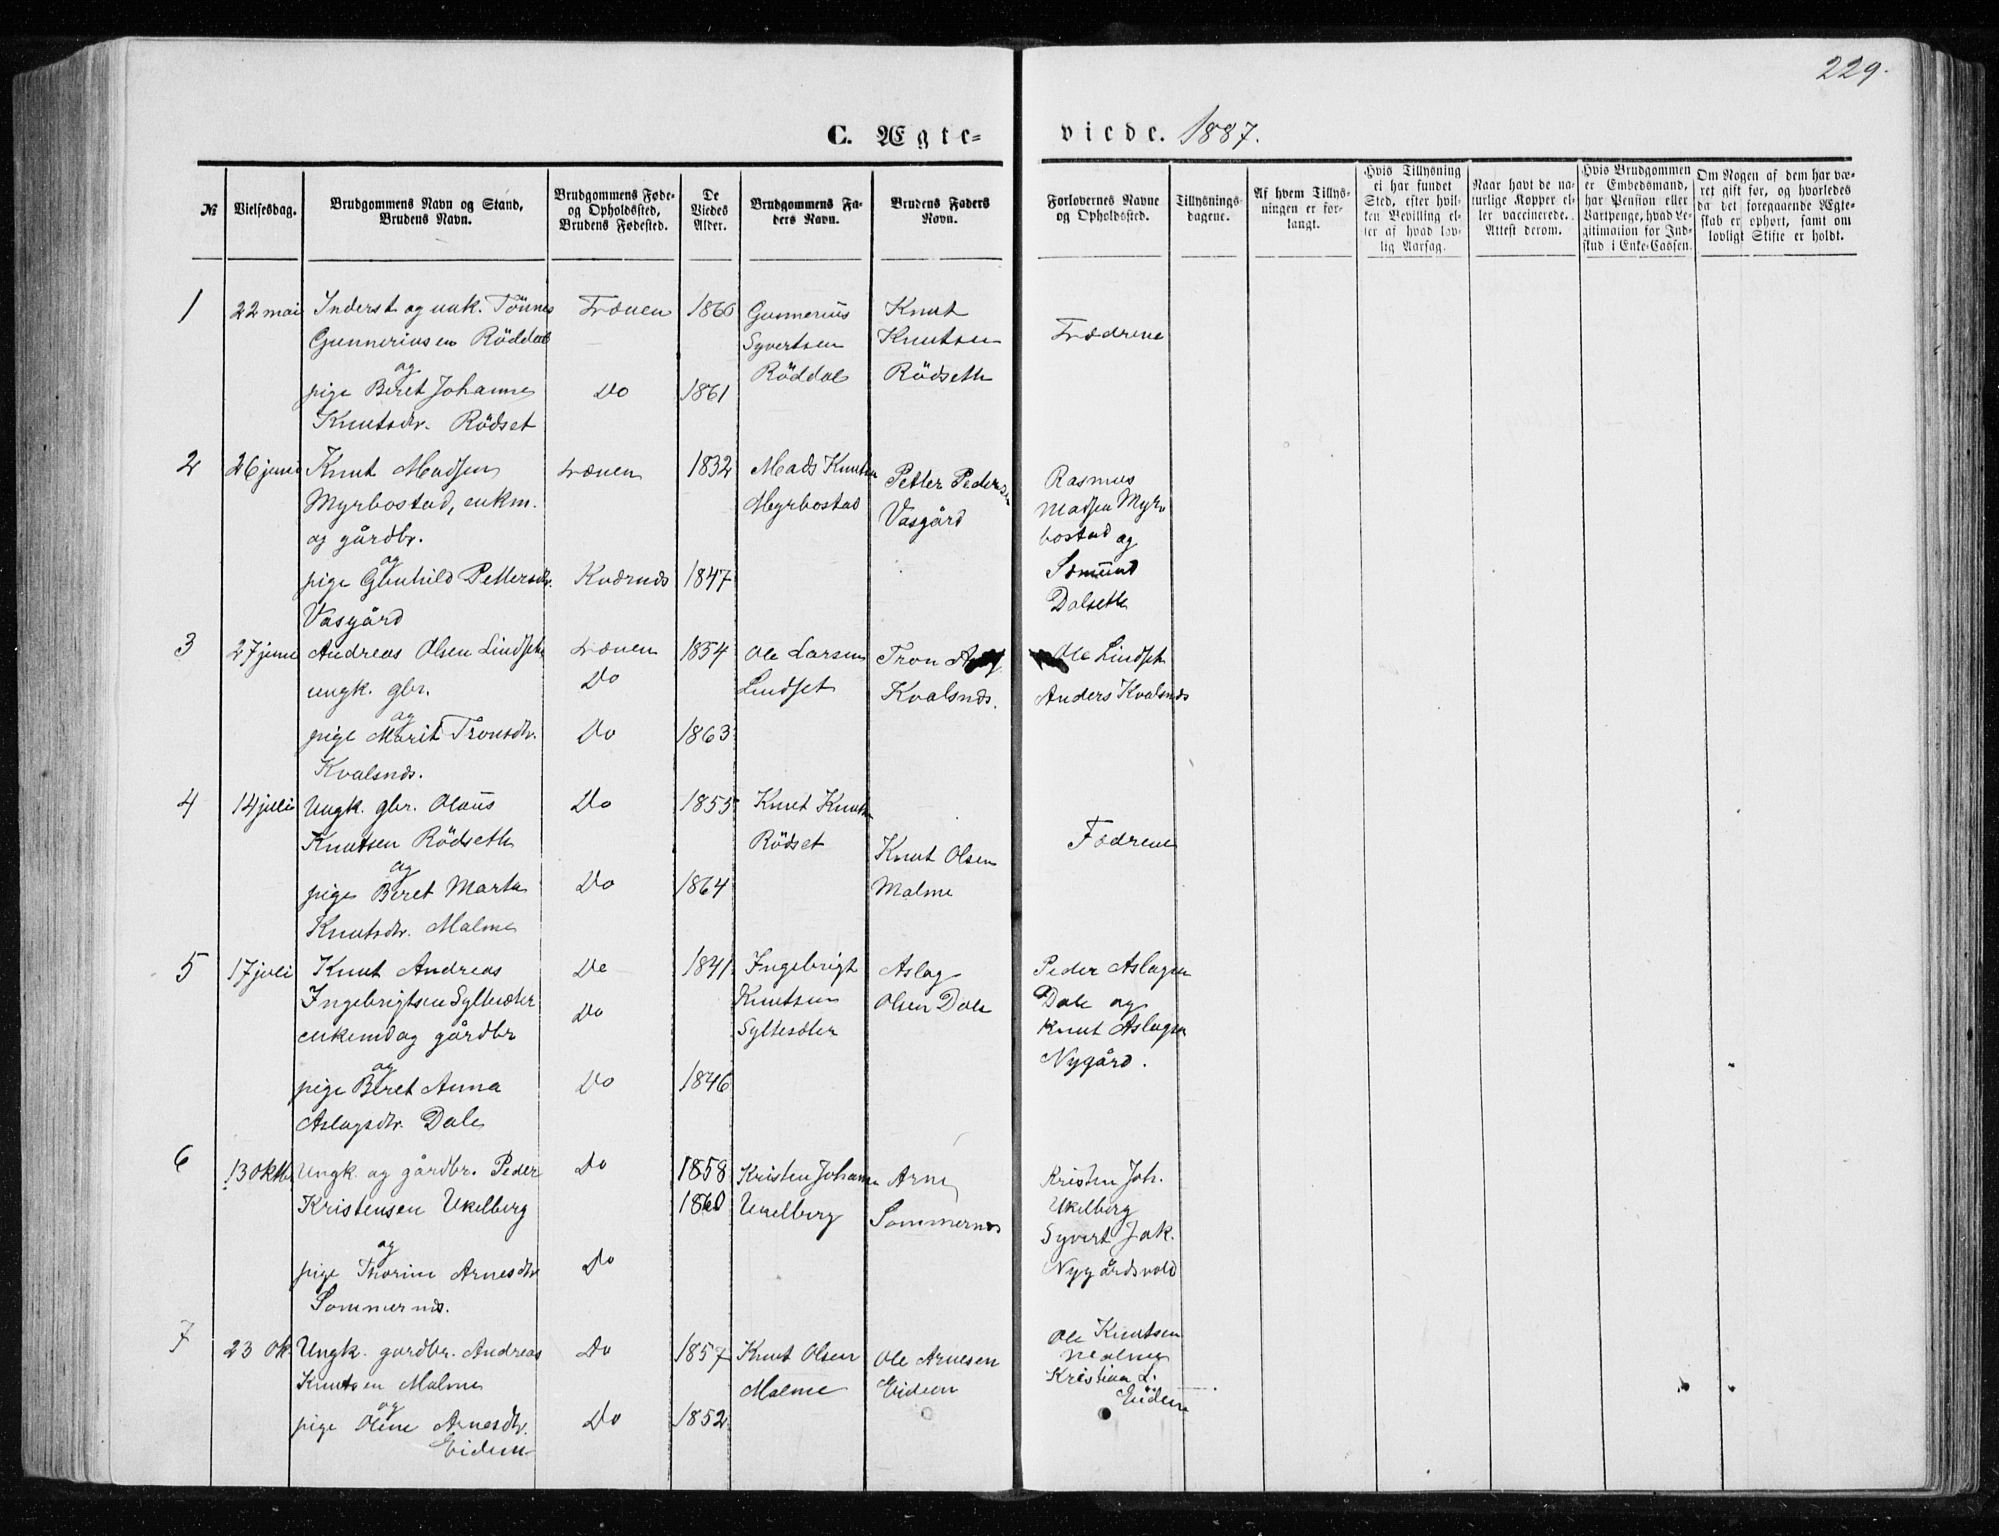 229.
C. Ægte-
viede. 1887.
№
Vielsesdag.
Brudgommens Navn og Stand,
Brudens Navn.
Brudgommens Føde-
og Opholdssted,
Brudens Fødested.
De
Viedes
Alder.
Brudgommens Fa-
ders Navn.
Brudens Faders
Navn.
Forlovernes Navne
og Opholdssted.
Tillysnings-
dagene.
Af hvem Tillys-
ningen er for-
langt.
Hvis Tillysning
ei har fundet
Sted, efter hvil-
ken Bevilling el-
ler af hvad lov-
lig Aarsag.
Naar havt de na-
turlige Kopper el-
ler vaccinerede.
Attest derom.
Hvis Brudgommen
er Embedsmand,
har Pension eller
Vartpenge, hvad Le-
gitimation for Ind-
skud i Enke-Cassen.
Om Nogen af dem har væ-
ret gift før, og hvorledes
da det foregaaende Ægte-
skab er ophørt, samt om
lovligt Skifte er holdt.
1
22 mai
Inderst og unk. Tönnes
Gunneriusen Röddal
og
pige Beret Johanna
Knutsdtr. Rödset
Frænen
Do
1860
1861
Gunnerius
Syvertsen
Röddal
Knut
Knutsen
Rödseth
Fædrene
2
26 juni
Knut Madsen
Myrbostad, enkm.
og gårdbr.
og
pige Gunhild Pettersdtr.
Vasgård
Frænen
Kværnæs
1832
1847
Mads Knutsen
Myrbostad
Petter Pedersen
Vasgård
Rasmus
Madsen Myr-
bostad og
Sæmund
Dalseth
3
27 juni
Andreas Olsen Lindset
ungk. gbr.
og
pige Marit Tronsdtr.
Kvalsnæs.
Frænen
Do
Do
1854
1863
Ole Larsen
Lindset
Tron
Kvalsnæs.
Ole Lindset
Anders Kvalsnæs
4
14 juli
Ungk. gbr. Olaus
Knutsen Rödseth
og
pige Beret Marta
Knutsdtr. Malme
Do
Do
1855
1864
Knut Knutsen
Rödset
Knut Olsen
Malme
Fædrene
5
17 juli
Knut Andreas
Ingebrigtsen Syltesæter
enkemd og gårdbr
og
pige Beret Anna
Aslagsdtr. Dale
Do
Do
Do
1841
1846
Ingebrigt
Knutsen
Syltesæter
Aslag
Olsen Dale
Peder Aslagsen
Dale og
Knut Aslagsen
Nygård.
6
13 oktbr
Ungk. og gårdbr. Peder
Kristensen Ukelberg
og
pige Thorine Arnesdtr
Sommernæs.
Do
Do
1858
1860
Kristen Johansen
Ukelberg
Arne
Sommernæs
Kristen Joh.
Ukelberg
Syvert Jak.
Nygårdsvold
7
23 okt.
Ungk. gardbr. Andreas
Knutsen Malme
og
pige Oline Arnesdtr.
Eidem
Do
Do
1857
1852
Knut Olsen
Malme
Ole Arnesen
Eidem
Ole Knutsen
Malme
Kristian L.
Eidem